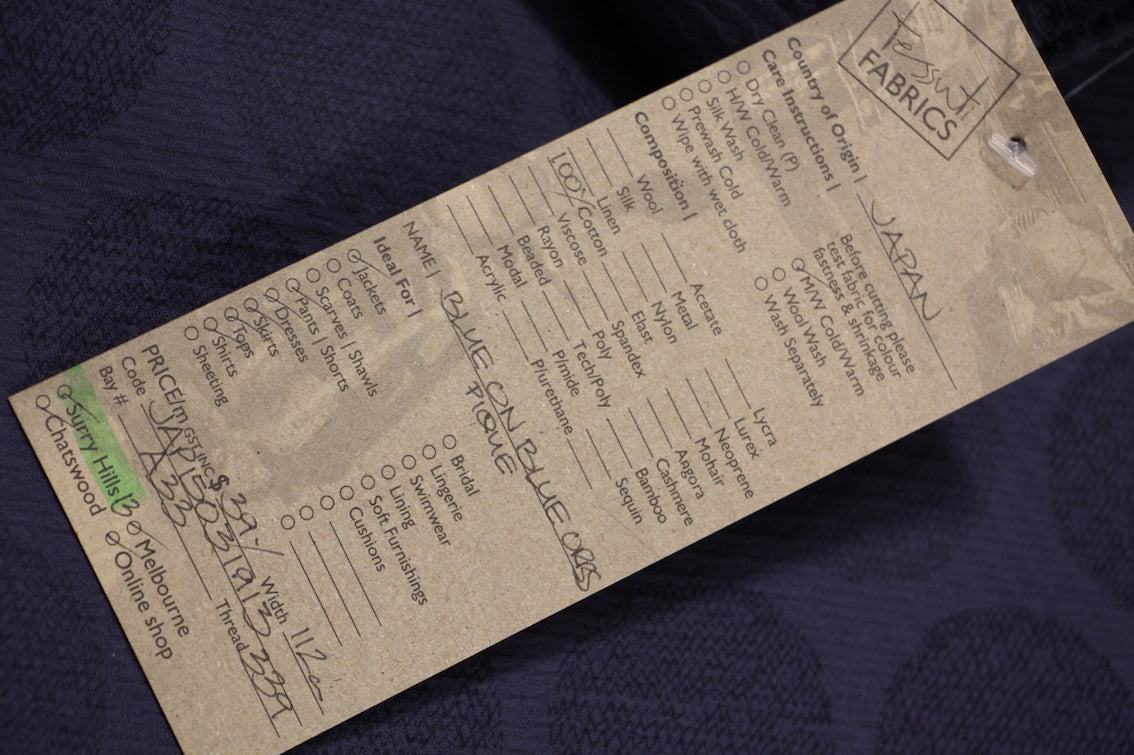 Tessuti
FABRICS
Country of Origin | JAPAN
Care Instructions |
Before cutting please
test fabric for colour
fastness & shrinkage
Dry Clean (P)
H/W Cold/Warm
Silk Wash
Prewash Cold
Wipe with wet cloth
M/W Cold/Warm
Wool Wash
Wash Separately
Composition |
Wool
Silk
Linen
100% Cotton
Viscose
Rayon
Beaded
Modal
Acrylic
Acetate
Metal
Nylon
Elast
Spandex
Poly
Tech/Poly
P/mide
P/urethane
Lycra
Lurex
Neoprene
Mohair
Angora
Cashmere
Bamboo
Sequin
NAME | BLUE ON BLUE ORBS
PIQUE
Ideal For |
Jackets
Coats
Scarves | Shawls
Pants | Shorts
Dresses
Skirts
Tops
Shirts
Sheeting
Bridal
Lingerie
Swimwear
Lining
Soft Furnishings
Cushions
PRICE/m GST INC $ 39.- Width 112
Code JAP15031913 Thread 339
Bay # A33
Surry Hills 13 Melbourne
Chatswood Online shop